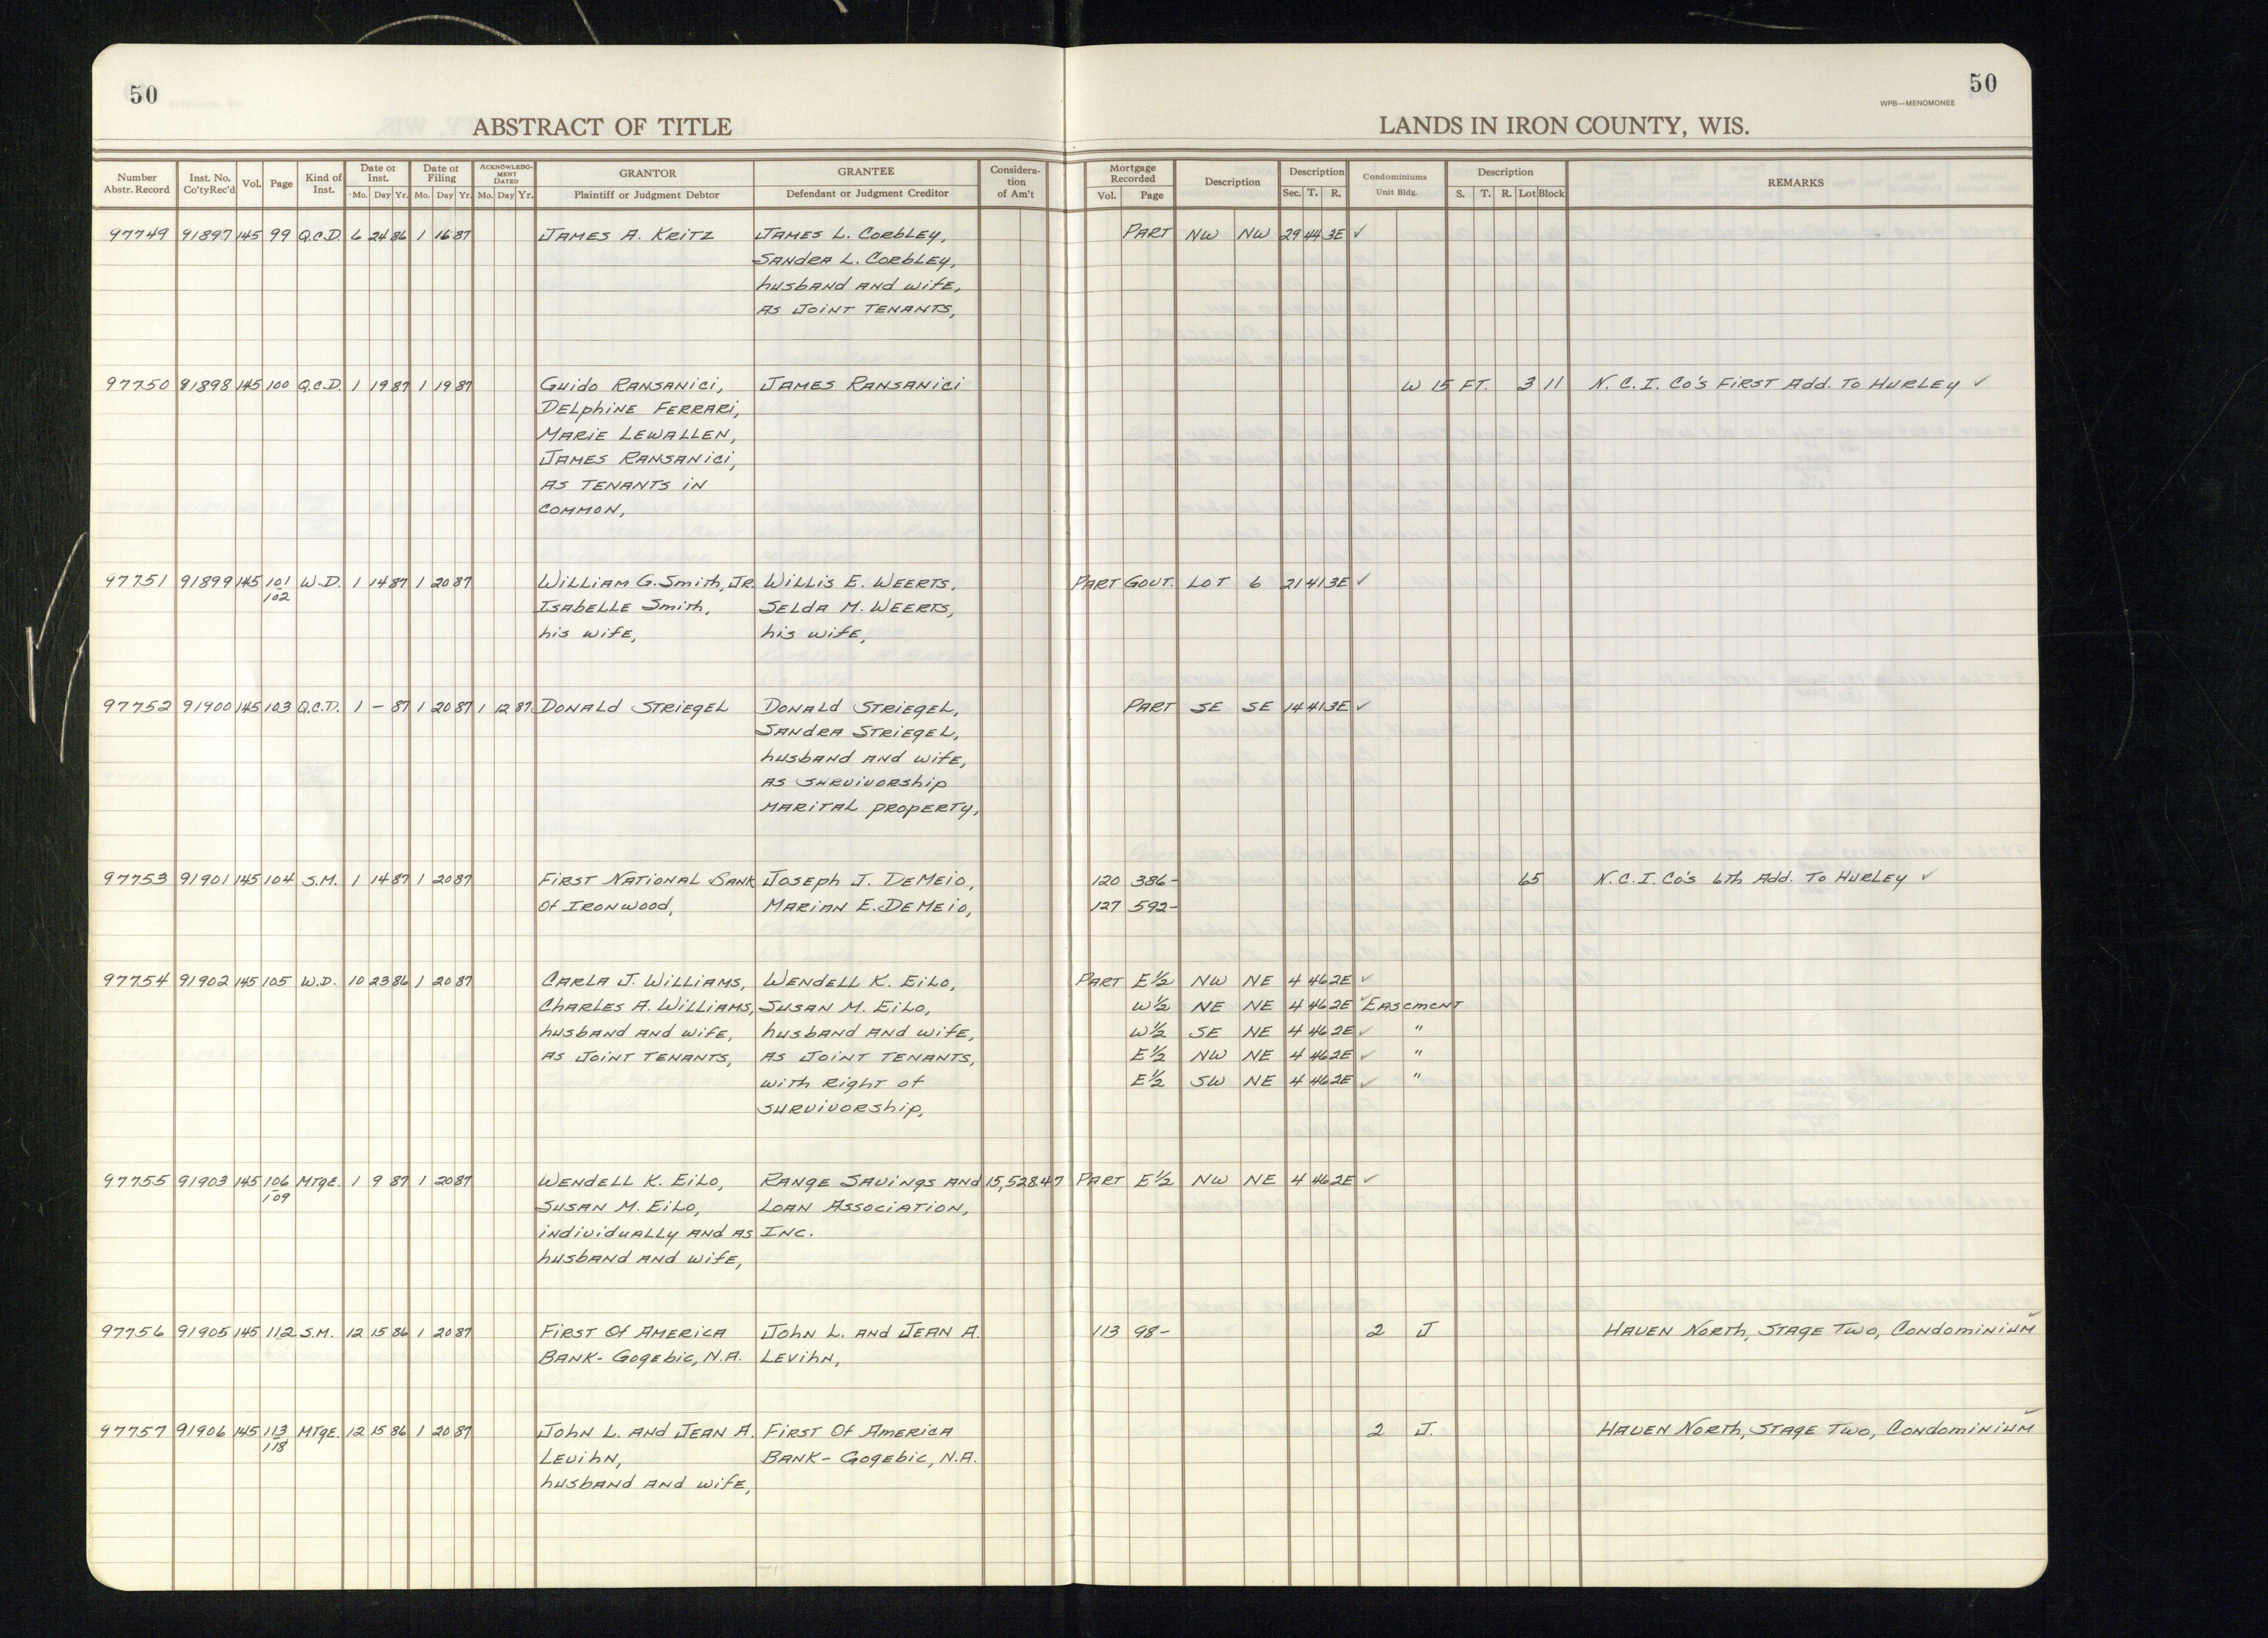 50
50
WPB—MENOMONEE
ABSTRACT OF TITLE
LANDS IN IRON COUNTY, WIS.
Number Abstr. Record | Inst. No. Co'tyRec'd | Vol. | Page | Kind of Inst. | Date of Inst. Mo. Day Yr. | Date of Filing Mo. Day Yr. | ACKNOWLEDG-MENT DATED Mo. Day Yr. | GRANTOR Plaintiff or Judgment Debtor | GRANTEE Defendant or Judgment Creditor | Considera-tion of Am't | Mortgage Recorded Vol. Page | Description | Description Sec. T. R. | Condominiums Unit Bldg. | Description S. T. R. Lot Block | REMARKS
97749 91897 145 99 Q.C.D. 6 24 86 1 16 87 James A. Kritz James L. Corbley, Part NW NW 29 44 3E ✓
Sandra L. Corbley,
husband and wife,
as Joint Tenants,
97750 91898 145 100 Q.C.D. 1 19 87 1 19 87 Guido Ransanici, James Ransanici W 15 FT. 3 11 N.C.I. Co's First Add. To Hurley ✓
Delphine Ferrari,
Marie Lewallen,
James Ransanici,
as Tenants in
Common,
97751 91899 145 101 W.D. 1 14 87 1 20 87 William G. Smith, Jr. Willis E. Weerts, Part Gout. Lot 6 21 41 3E ✓
102 Isabelle Smith, Selda M. Weerts,
his wife, his wife,
97752 91900 145 103 Q.C.D. 1 – 87 1 20 87 1 12 87 Donald Striegel Donald Striegel, Part SE SE 14 41 3E ✓
Sandra Striegel,
husband and wife,
as survivorship
marital property,
97753 91901 145 104 S.M. 1 14 87 1 20 87 First National Bank Joseph J. DeMeio, 120 386- 65 N.C.I. Co's 6th Add. To Hurley ✓
Of Ironwood, Marian E. DeMeio, 127 592-
97754 91902 145 105 W.D. 10 23 86 1 20 87 Carla J. Williams, Wendell K. Eilo, Part E½ NW NE 4 46 2E ✓
Charles A. Williams, Susan M. Eilo, W½ NE NE 4 46 2E ✓ Easement
husband and wife, husband and wife, W½ SE NE 4 46 2E ✓ "
as Joint Tenants, as Joint Tenants, E½ NW NE 4 46 2E ✓ "
with right of E½ SW NE 4 46 2E ✓ "
survivorship,
97755 91903 145 106 Mtge. 1 9 87 1 20 87 Wendell K. Eilo, Range Savings and 15,528.47 Part E½ NW NE 4 46 2E ✓
109 Susan M. Eilo, Loan Association,
individually and as Inc.
husband and wife,
97756 91905 145 112 S.M. 12 15 86 1 20 87 First Of America John L. and Jean A. 113 98- 2 J Haven North, Stage Two, Condominium ✓
Bank- Gogebic, N.A. Levihn,
97757 91906 145 113 Mtge. 12 15 86 1 20 87 John L. and Jean A. First Of America 2 J. Haven North, Stage Two, Condominium ✓
118 Levihn, Bank- Gogebic, N.A.
husband and wife,